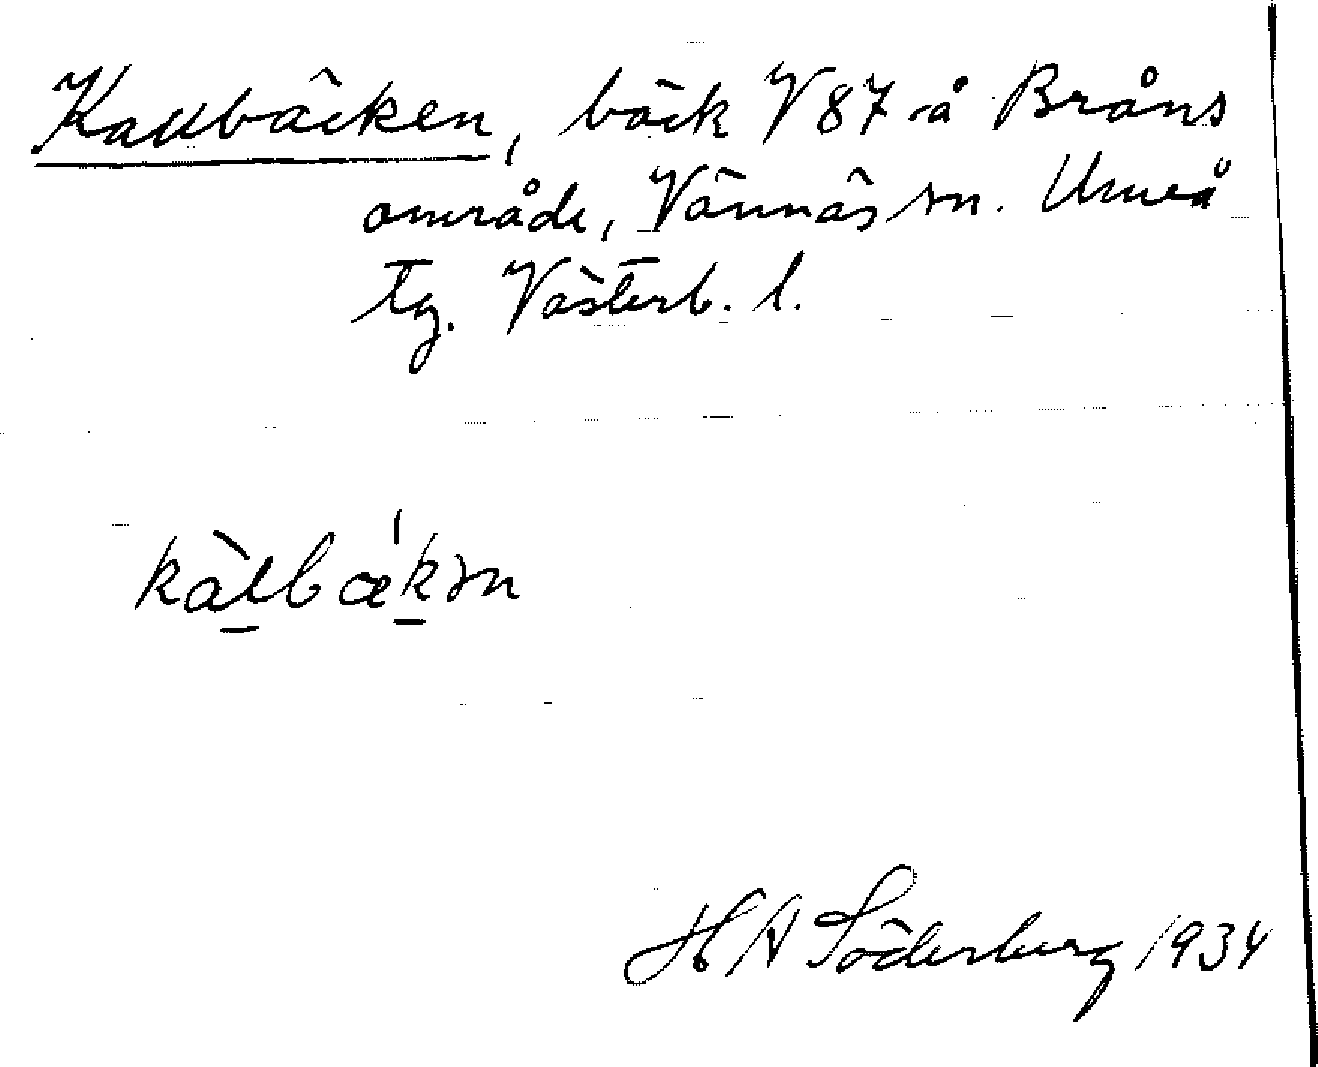 Kallbäcken, bäck V 87 å Bråns
område, Vännäs sn. Umeå
tg. Västerb. l.
kàlbæ'kən
H A Söderberg 1934